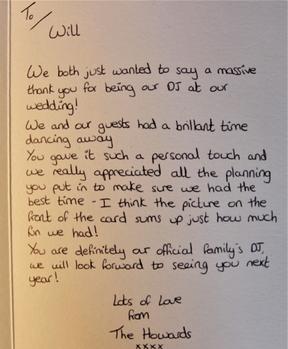 To/
Will
We both just wanted to say a massive
thank you for being our DJ at our
wedding!
We and our guests had a brillant time
dancing away
You gave it such a personal touch and
we really appreciated all the planning
you put in to make sure we had the
best time - I think the picture on the
front of the card sums up just how much
fun we had!
You are definitely our official family's DJ,
we will look forward to seeing you next
year!
Lots of Love
from
The Howards
xxxx